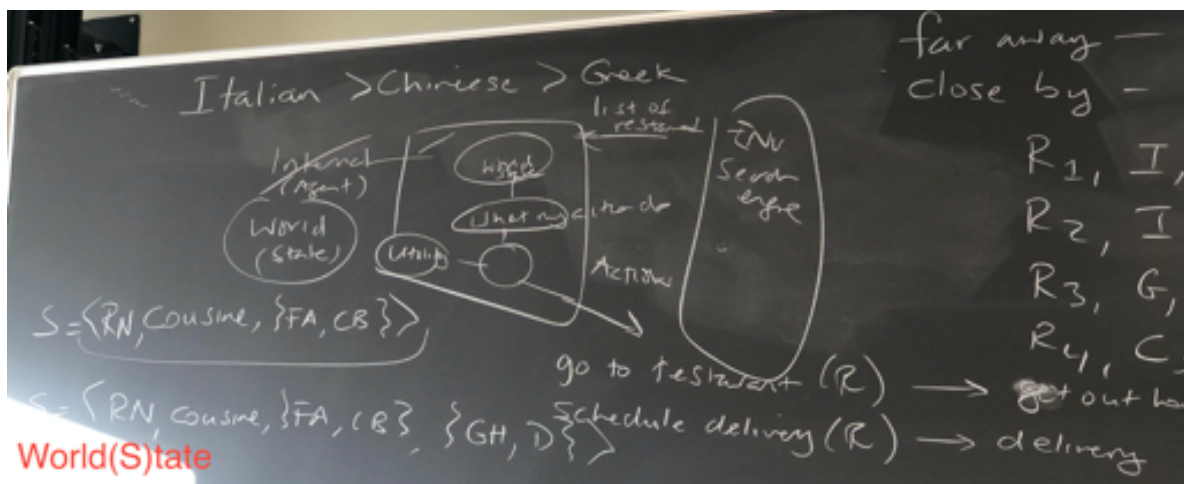 far away —
close by -
Italian > Chinese > Greek
list of
Internal
(Agent)
World
World
(State)
What my
Utility
Actions
Env
Search
R1, I,
R2, I
R3, G,
R4, C,
S = <RN, Cousine, {FA, CB}>
go to restaurant (R) → get out
S = <RN, Cousine, {FA, CB}, {GH, D}>
Schedule delivery (R) → delivery
World(S)tate